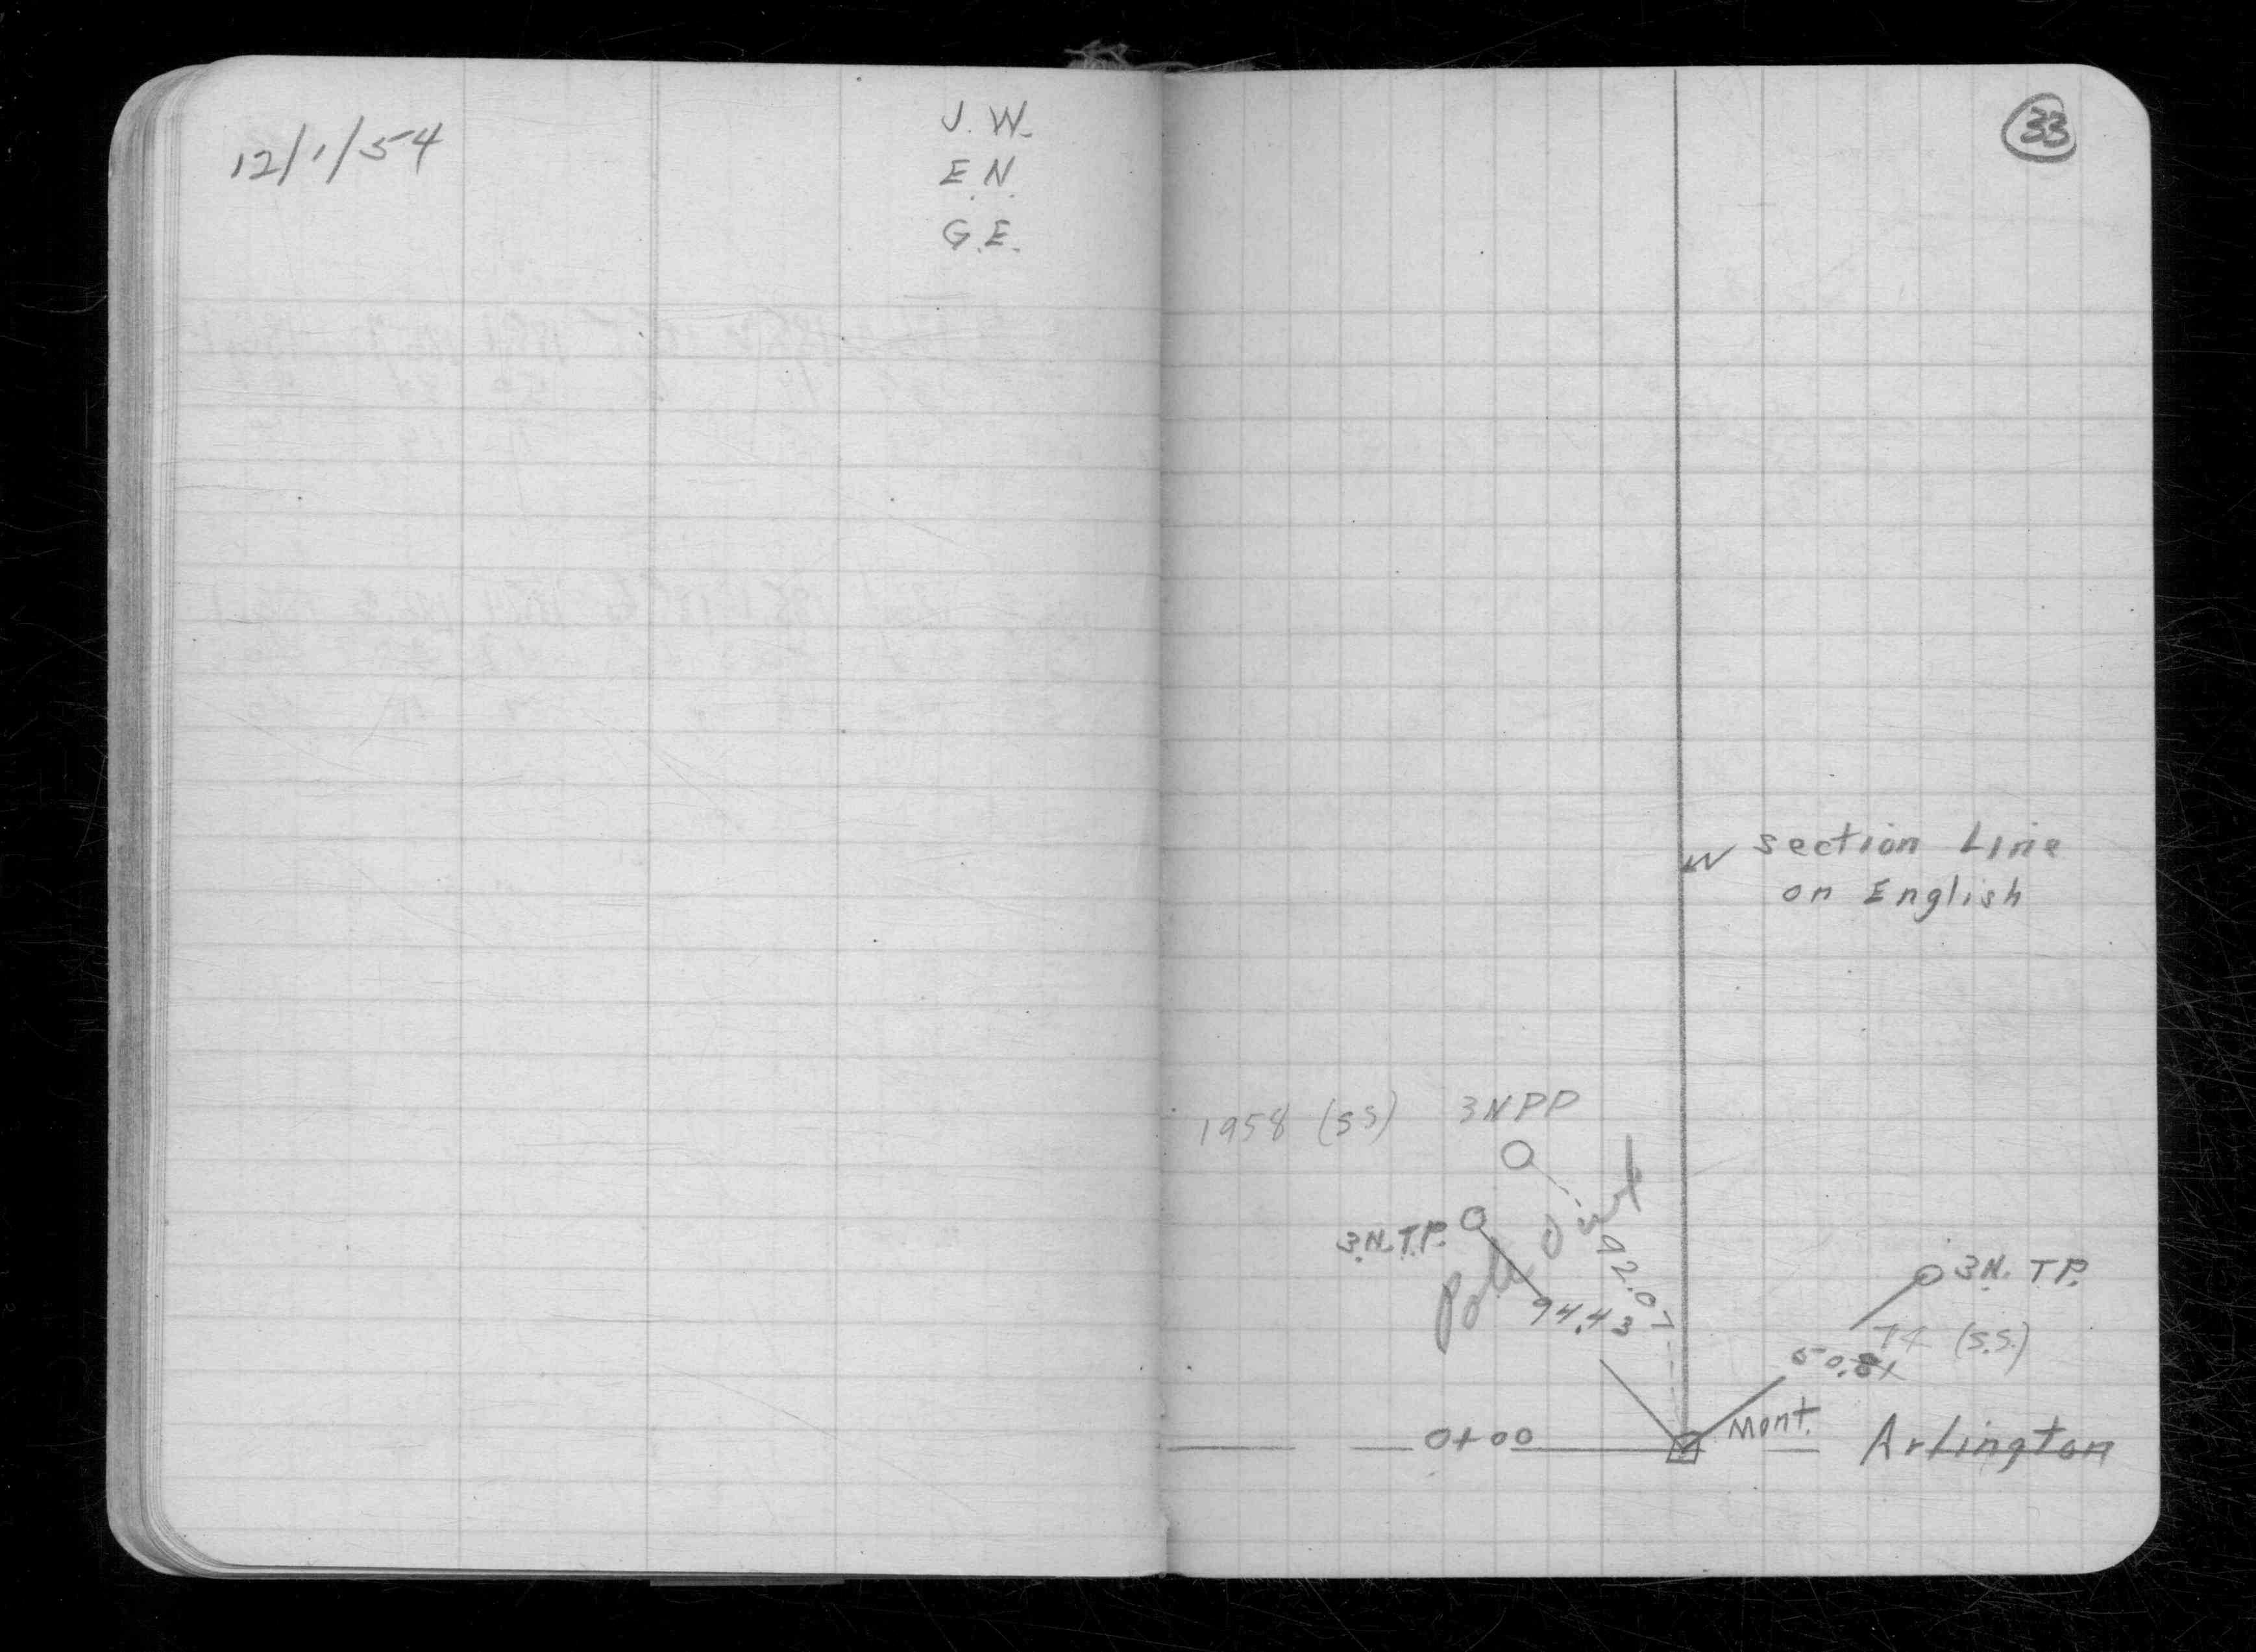 12/1/54
J. W.
E. N.
G. E.
33
section Line
on English
1958 (SS) 3NPP
3.N.T.P.
Pole Out
92.07
94.43
3.N. T.P.
74 (S.S.)
50.81
Mont.
0+00
Arlington